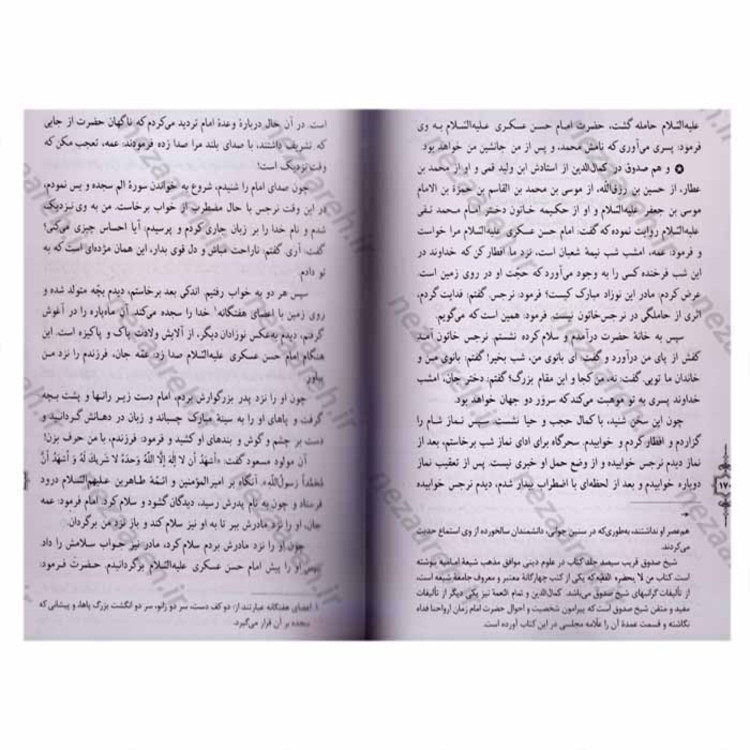 علیه‌السّلام حامله گشت، حضرت امام حسن عسکری علیه‌السّلام به وی
فرمود: پسری می‌آوری که نامش محمد، و پس از من جانشین من خواهد بود.
و هم صدوق در کمال‌الدین از استادش ابن ولید قمی و او از محمد بن
عطار، از حسین بن رزق‌الله، از موسی بن محمد بن القاسم بن حمزة بن الامام
موسی بن جعفر علیه‌السّلام و او از حکیمه خاتون دختر امام محمد تقی
علیه‌السّلام روایت نموده که گفت: امام حسن عسکری علیه‌السّلام مرا خواست
و فرمود: عمه، امشب شب نیمهٔ شعبان است، نزد ما افطار کن که خداوند در
این شب فرخنده کسی را به وجود می‌آورد که حجّت او در روی زمین است.
عرض کردم: مادر این نوزاد مبارک کیست؟ فرمود: نرجس. گفتم: فدایت گردم،
اثری از حاملگی در نرجس‌خاتون نیست. فرمود: همین است که می‌گویم.
سپس به خانهٔ حضرت درآمدم و سلام کرده نشستم. نرجس خاتون آمد
کفش از پای من درآورد و گفت: ای بانوی من، شب بخیر! گفتم: بانوی من و
خاندان ما تویی. گفت: نه، من کجا و این مقام بزرگ؟ گفتم: دختر جان، امشب
خداوند پسری به تو موهبت می‌کند که سرور دو جهان خواهد بود.
چون این سخن شنید، با کمال حجب و حیا نشست. سپس نماز شام را
گزاردم و افطار کردم و خوابیدم. سحرگاه برای ادای نماز شب برخاستم، بعد از
نماز دیدم نرجس خوابیده و از وضع حمل او خبری نیست. پس از تعقیب نماز
دوباره خوابیدم و بعد از لحظه‌ای با اضطراب بیدار شدم، دیدم نرجس خوابیده
هم‌عصر او نداشتند، به‌طوری‌که در سنین جوانی، دانشمندان سالخورده از وی استماع حدیث
می‌کردند.
شیخ صدوق قریب سیصد جلد کتاب در علوم دینی موافق مذهب شیعهٔ امامیه نوشته
است. کتاب من لا یحضره الفقیه که یکی از کتب چهارگانهٔ معتبر و معروف جامعهٔ شیعه است،
از تألیفات گرانبهای شیخ صدوق می‌باشد. کمال‌الدین و تمام النعمة نیز یکی دیگر از تألیفات
مفید و متقن شیخ صدوق است که پیرامون شخصیت و احوال حضرت امام زمان ارواحنا فداه
نگاشته و قسمت عمدهٔ آن را علّامه مجلسی در این کتاب آورده است.
۱۷۰
است. در آن حال دربارهٔ وعدهٔ امام تردید می‌کردم که ناگهان حضرت از جایی
که تشریف داشتند، با صدای بلند مرا صدا زده فرمودند: عمه، تعجب مکن که
وقت نزدیک است!
چون صدای امام را شنیدم، شروع به خواندن سورهٔ الم سجده و یس نمودم،
در این وقت نرجس با حال مضطرب از خواب برخاست. من به وی نزدیک
شدم و نام خدا را بر زبان جاری کردم و پرسیدم: آیا احساس چیزی می‌کنی؟
گفت: آری. گفتم: ناراحت مباش و دل قوی بدار، این همان مژده‌ای است که به
تو دادم.
سپس هر دو به خواب رفتیم. اندکی بعد برخاستم، دیدم بچّه متولد شده و
روی زمین با اعضای هفتگانه۱ خدا را سجده می‌کند. آن ماه‌پاره را در آغوش
گرفتم، دیدم به‌عکس نوزادان دیگر، از آلایش ولادت پاک و پاکیزه است. این
هنگام امام حسن عسکری علیه‌السّلام صدا زد: عمّه جان، فرزندم را نزد من
بیاور.
چون او را نزد پدر بزرگوارش بردم، امام دست زیر رانها و پشت بچه
گرفت و پاهای او را به سینهٔ مبارک چسباند و زبان در دهانش گردانید و
دست بر چشم و گوش و بندهای او کشید و فرمود: فرزندم، با من حرف بزن!
آن مولود مسعود گفت: «أشهَدُ أن لا إلهَ إلّا اللّهُ وَحدَهُ لا شَریکَ لَهُ وَ أشهَدُ أنَّ
مُحَمَّداً رَسولُ اللّهِ». آنگاه بر امیرالمؤمنین و ائمّهٔ طاهرین علیهم‌السّلام درود
فرستاد و چون به نام پدرش رسید، دیدگان گشود و سلام کرد. امام فرمود: عمه
جان، او را نزد مادرش ببر تا به او نیز سلام کند و باز نزد من برگردان.
چون او را نزد مادرش بردم سلام کرد، مادر نیز جواب سلامش را داد.
و او را پیش امام حسن عسکری علیه‌السّلام برگردانیدم. حضرت فرمود:
۱. اعضای هفتگانه عبارتند از: دو کف دست، سر دو زانو، سر دو انگشت بزرگ پاها، و پیشانی که
سجده بر آن قرار می‌گیرد.
nezaareh.ir